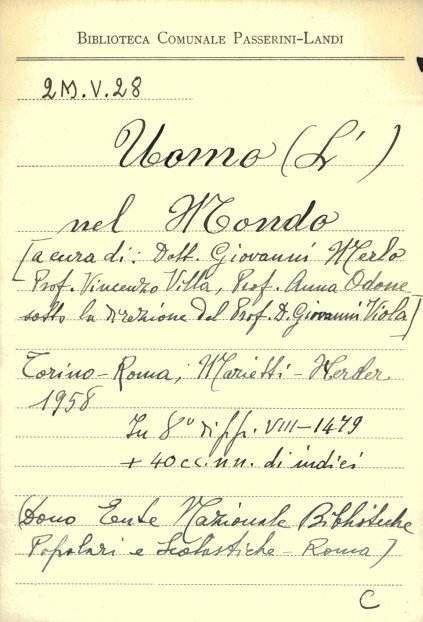 BIBLIOTECA COMUNALE PASSERINI-LANDI
2M.V.28
Uomo (L')
nel Mondo
[a cura di: Dott. Giovanni Merlo
Prof. Vincenzo Villa, Prof. Anna Odone
sotto la direzione del Prof. D. Giovanni Viola]
Torino-Roma, Marietti-Herder
1958
In 8° di pp. VIII-1479
+ 40 cc. nn. di indici
(Dono Ente Nazionale Biblioteche
Popolari e Scolastiche - Roma)
C